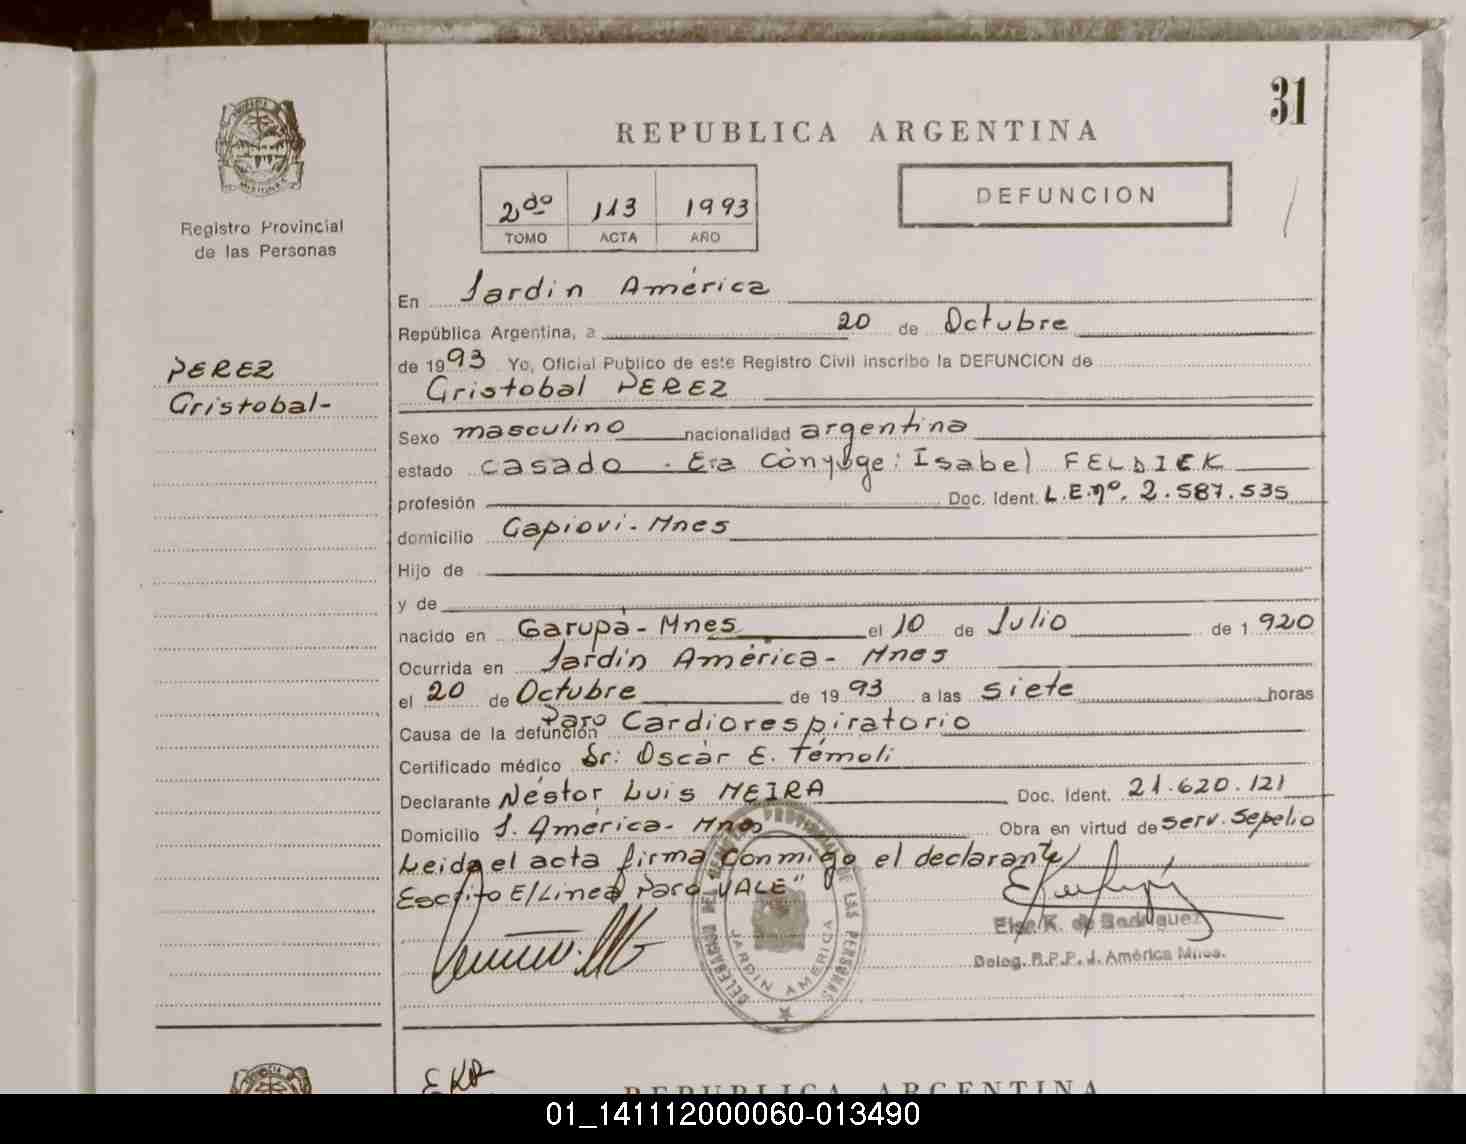 31
REPUBLICA ARGENTINA
2do 113 1993
TOMO ACTA AÑO
DEFUNCION
MISIONES
Registro Provincial
de las Personas
PEREZ
Cristobal-
En Jardín América
República Argentina, a 20 de Octubre
de 1993 Yo, Oficial Publico de este Registro Civil inscribo la DEFUNCION de
Cristobal PEREZ
Sexo masculino nacionalidad argentina
estado casado. Era Cónyuge: Isabel FELDIEK
profesión Doc. Ident. L.E.nº. 2.587.535
domicilio Capiovi-Mnes
Hijo de
y de
nacido en Garupá-Mnes el 10 de Julio de 1920
Ocurrida en Jardín América-Mnes
el 20 de Octubre de 1993 a las siete horas
Causa de la defunción Paro Cardiorespiratorio
Certificado médico Dr: Oscar E. Témoli
Declarante Néstor Luis MEIRA Doc. Ident. 21.620.121
Domicilio J. América-Mnes Obra en virtud de serv. Sepelio
Leida el acta firma conmigo el declarante/
Escrito E/Linea Paro "VALE"
DELEGACION DEL REGISTRO PROVINCIAL DE LAS PERSONAS
JARDIN AMERICA
Elsa K. de Rodriguez
Deleg. R.P.P. J. América Mnes.
EKR
REPUBLICA ARGENTINA
01_141112000060-013490